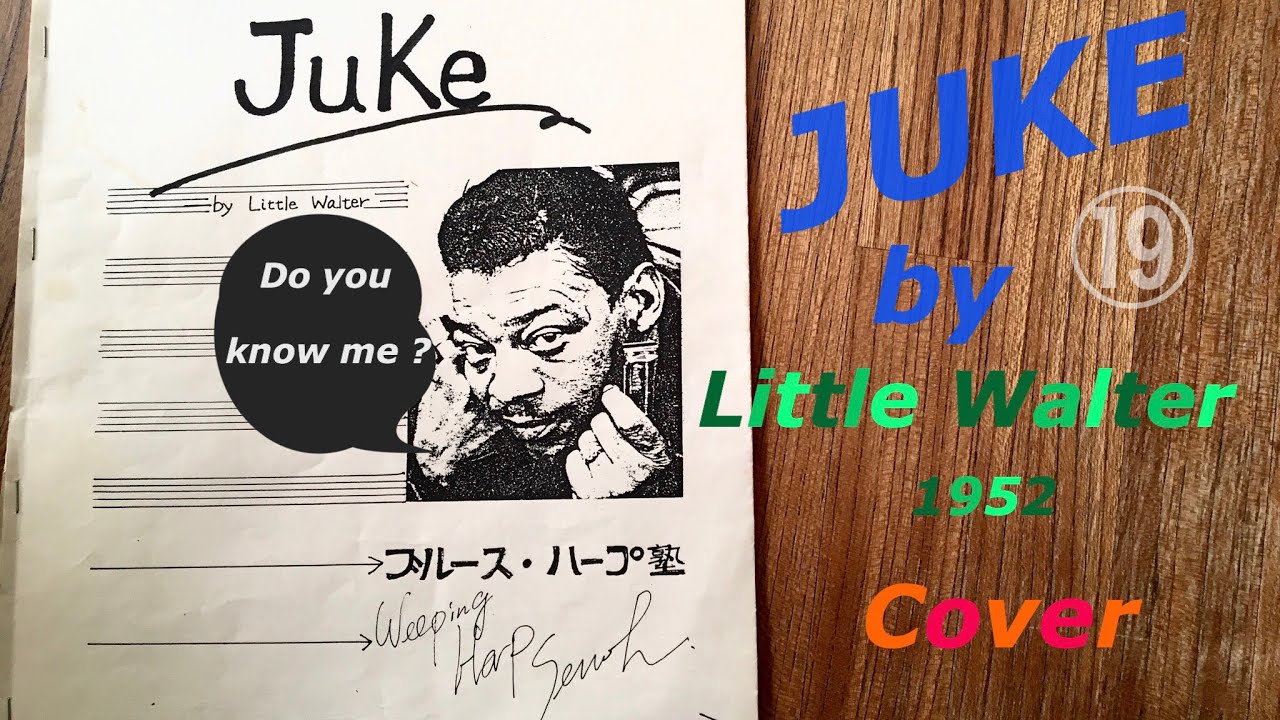 JuKe
by Little Walter
Do you
know me ?
ブルース・ハープ塾
Weeping
Harp Senoh.
JUKE
by
⑲
Little Walter
1952
Cover